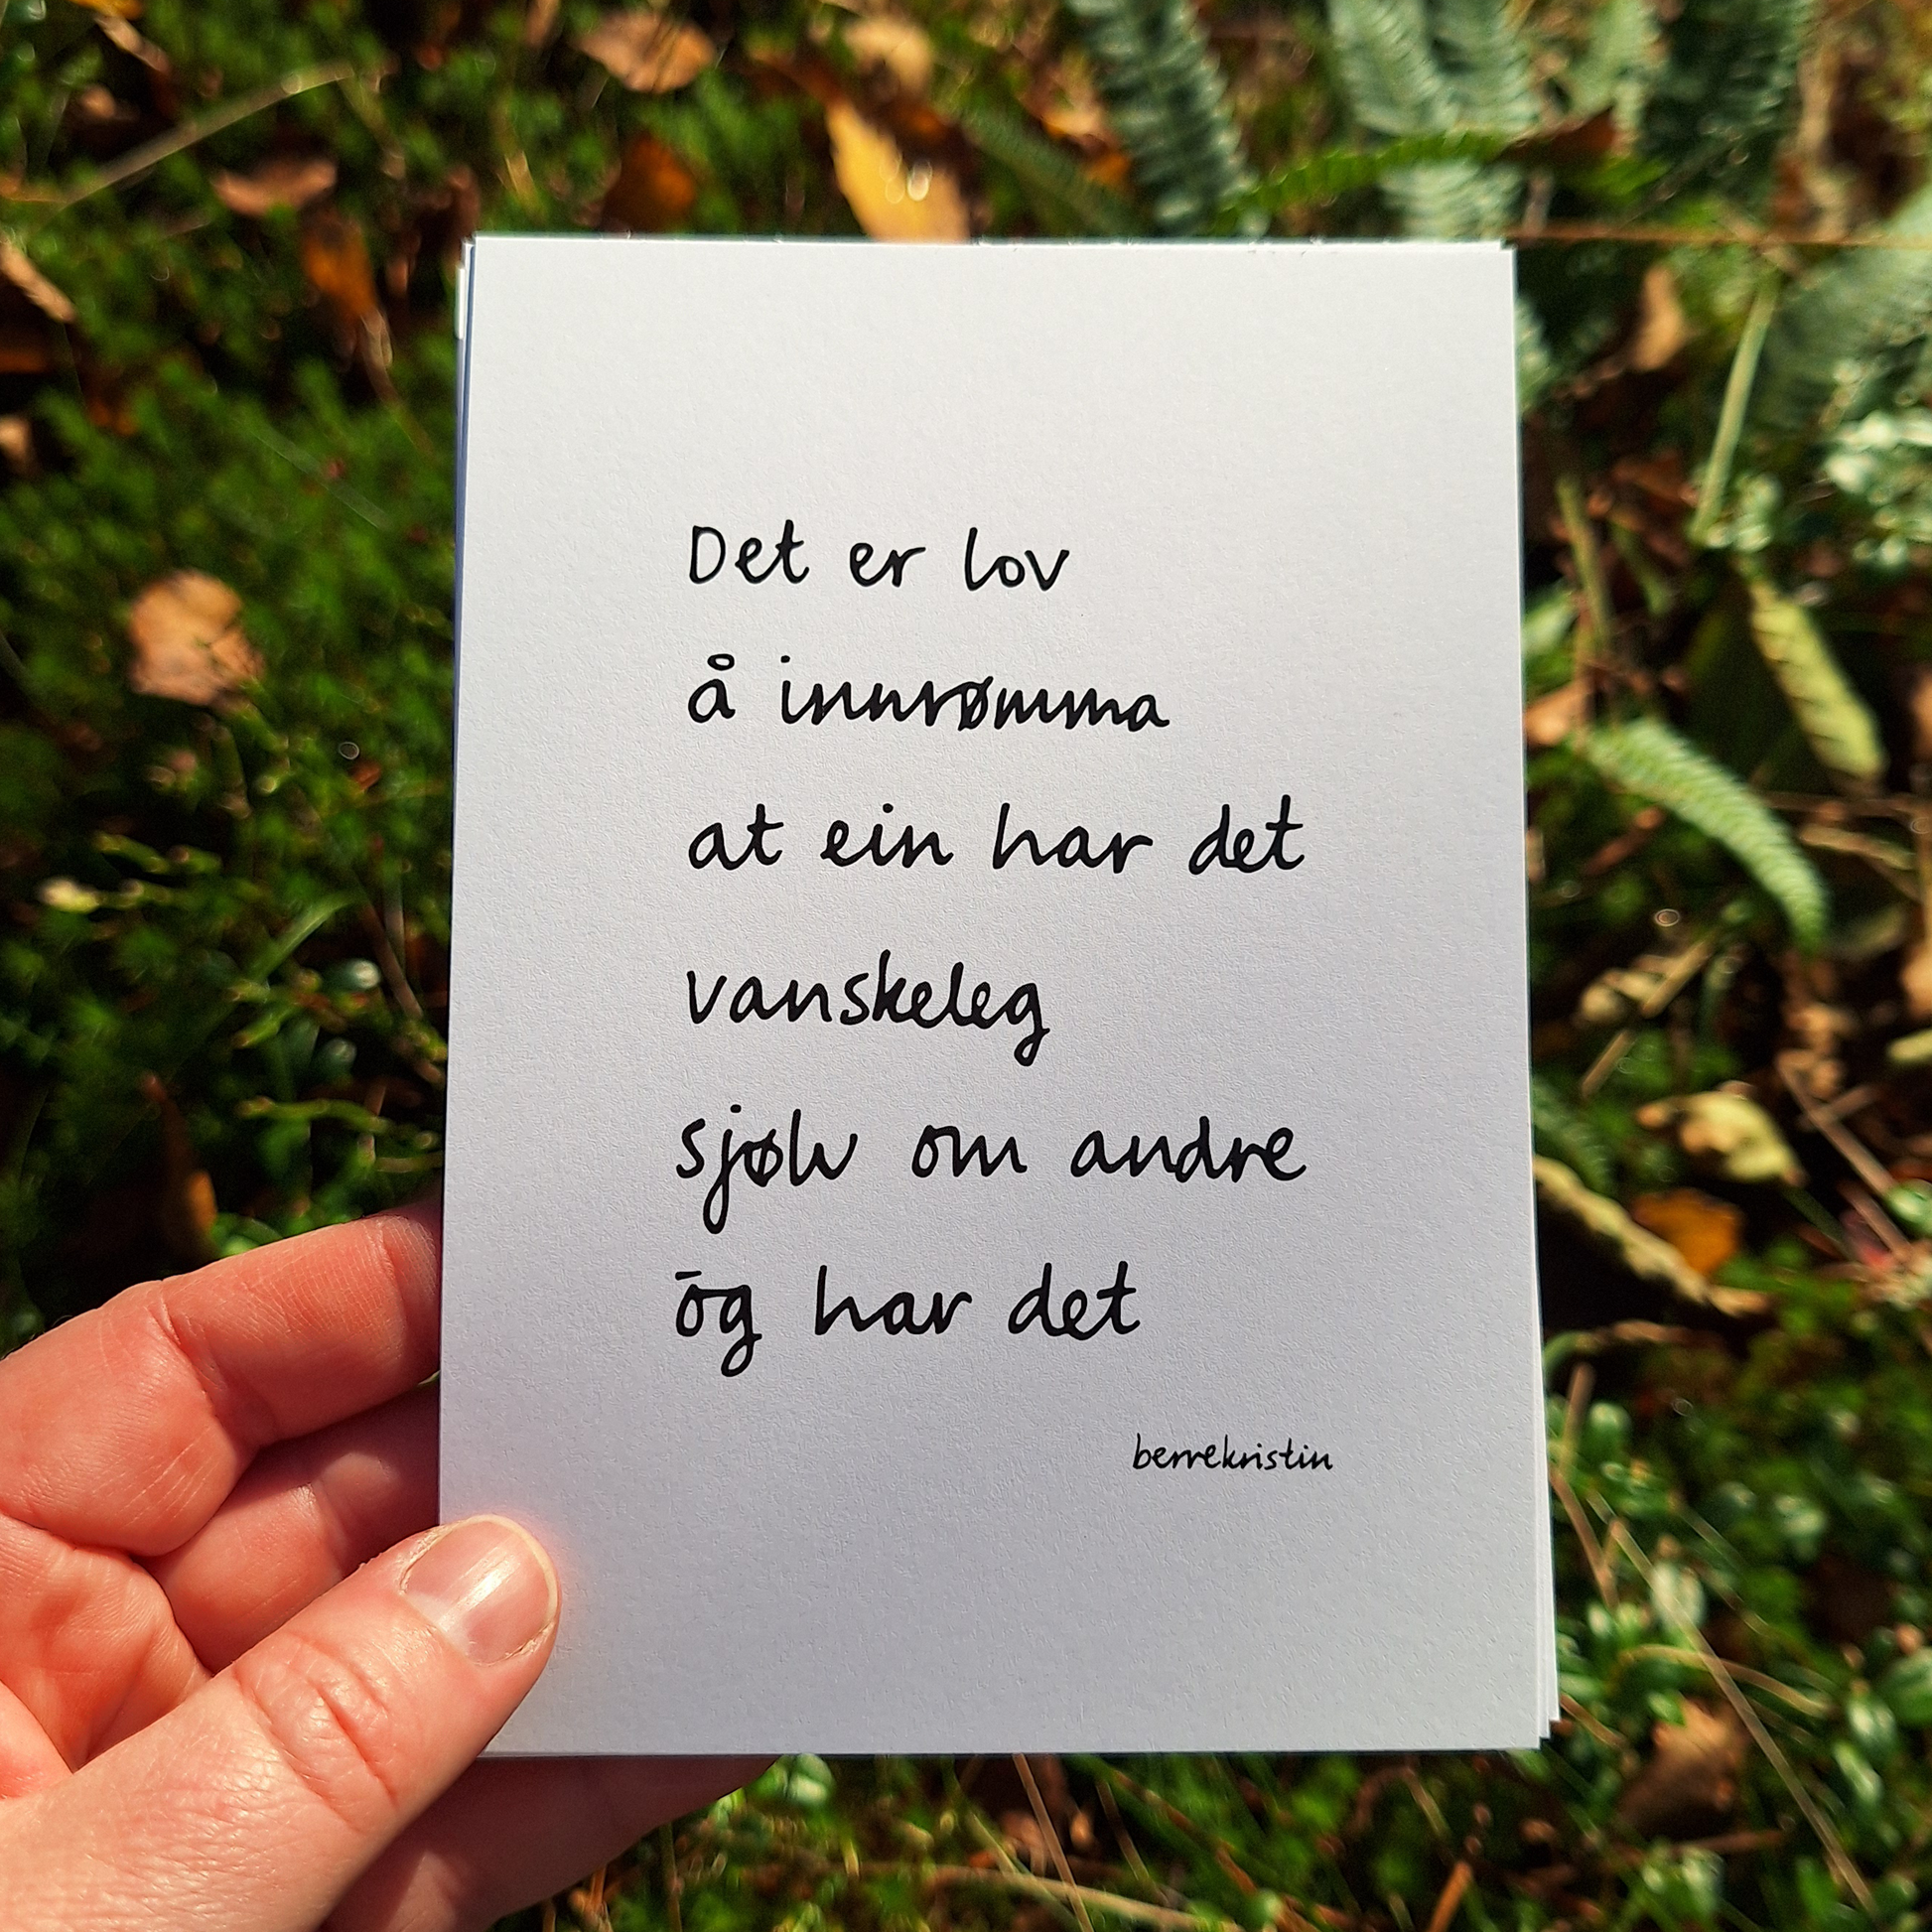 Det er lov
å innrømma
at ein har det
vanskeleg
sjølv om andre
ōg har det
berrekristin